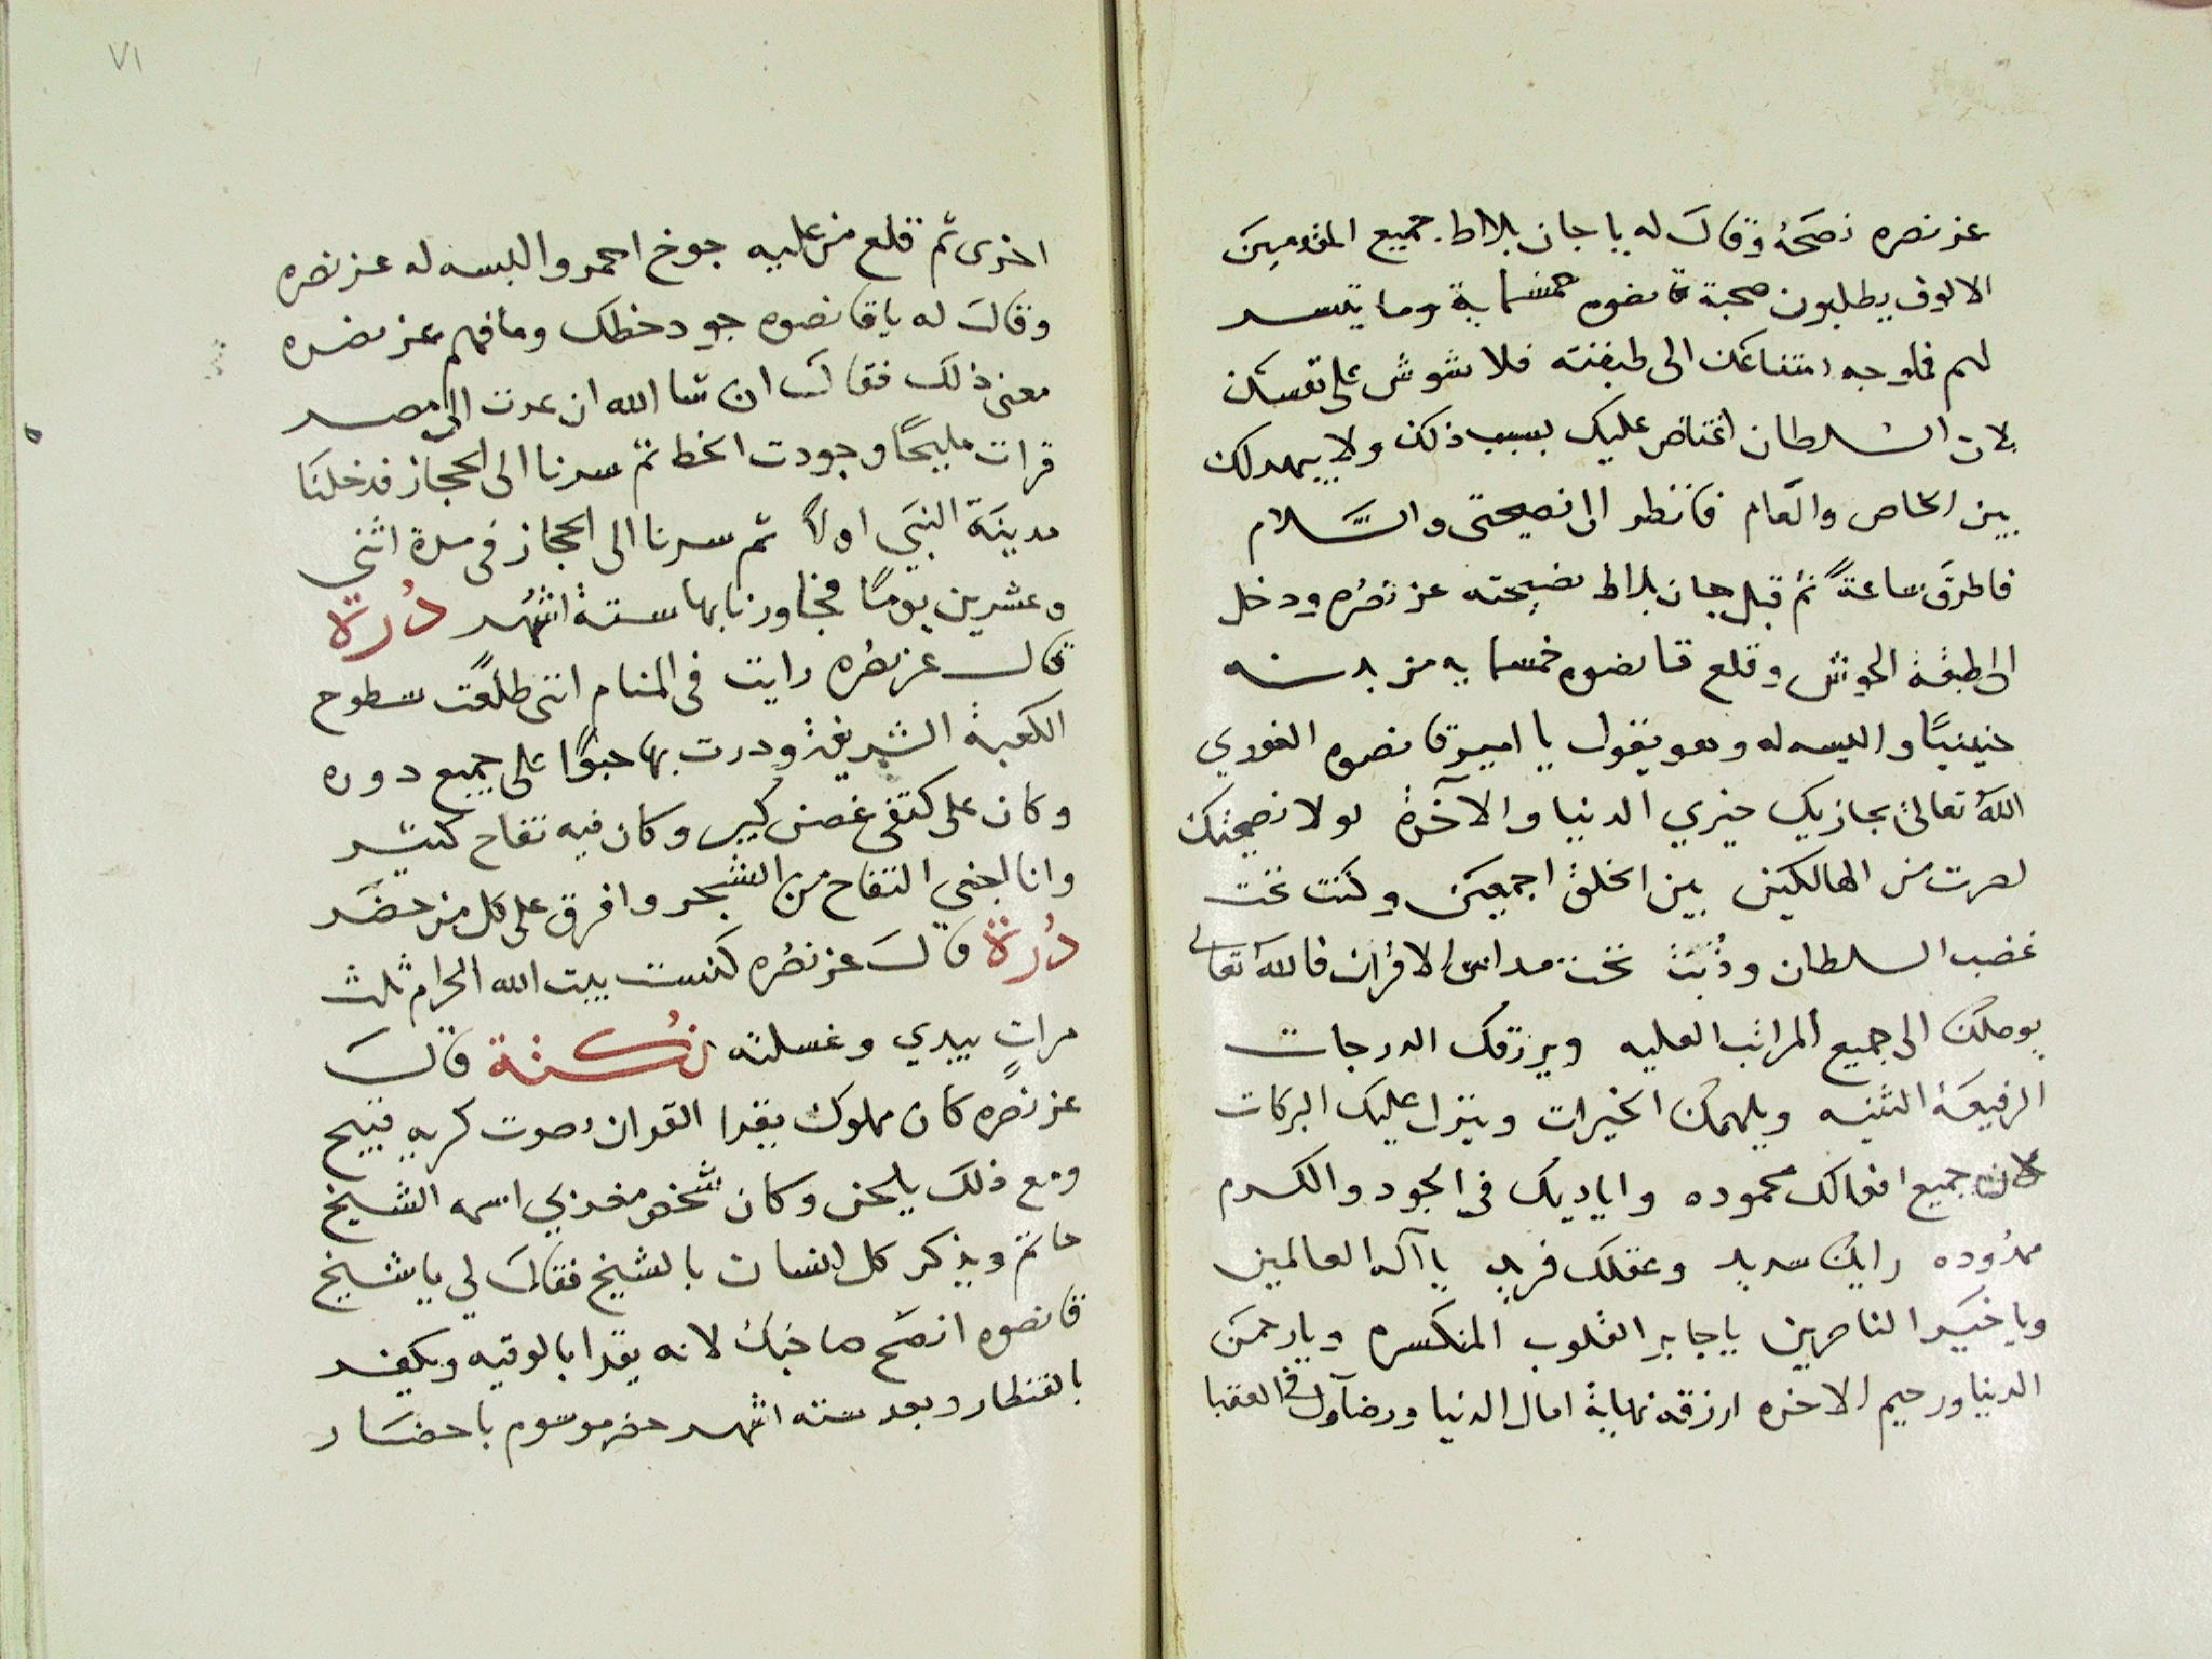 عز نصره نصَحَهُ وقالَ له يا جان بلاط جميع المقدمينَ
الالوف يطلبون صحبة قانصوه خمسماية وما تيسر
لهم فما وجه امتناعك الى طبقته فلا تشوش على نفسك
لان السلطان اغتاض عليك بسبب ذلك ولا يبهدلك
بين الخاص والعام فانظر الى نصيحتى والسَّلام
فاطرقَ ساعةً ثم قبل جان بلاط نصيحته عز نصُره ودخل
الى طبقة الحوش وقلع قانصوه خمسمايه من بدنه
حنينيًا والبسه له وهو يقول يا امير قانصوه الغوري
اللهُ تعالىٰ يجازيك خيري الدنيا والآخرة لولا نصيحتك
لصرت من الهالكين بين الخلق اجمعين وكنت تحت
غضب السلطان وذُبَتُ تحت مداس الاقران فاللهُ تعالى
يوصلك الى جميع المراتب العليه ويرزقك الدرجات
الرفيعة السنيه ويلهمك الخيرات وينزل عليك البركات
لان جميع افعالك محموده واياديك في الجود والكرم
ممدُوده رايك سديد وعقلك فريد يا آله العالمين
ويا خيَر الناصرين يا جابر القلوب المنكسره ويا رحمن
الدنيا ورحيم الاخره ارزقه نهاية امال الدنيا ورضآءك في العقبا
٧١
اخرى ثم قلع من عليه جوخ احمر والبسه له عز نصره
وقالَ له يا قانصوه جود خطك وما فهم عز نصره
معنى ذلك فقالَ ان شا الله ان عدت الى مصر
قرات مليحًا وجودت الخط ثم سرنا الى الحجاز فدخلنَا
مدينَة النبَي اولاً ثم سرنا الى الحجاز فى مدة اثني
وعشرين يومًا فجاورنا بها ستة اشهُر دُرة
قال عز نصُره رايت فى المنام اننى طلعت سطوح
الكعبة الشريفة ودرت بها حبوًا على جميع دوره
وكان على كتفى غصن كبير وكان فيه تفاح كثير
وانا اجني التفاح من الشجر وافرق على كل من حضَر
دُرة قالَ عز نصُره كنست بيت الله الحرام ثلث
مراتٍ بيدي وغسلته نُكتة قالَ
عز نصُره كان مملوك يقرا القران بصوت كريه قبيح
ومع ذلك يلحن وكان شخص مغربي اسمه الشيخ
حاتم ويذكر كل انسان بالشيخ فقالَ لي يا شيخ
قانصوه انصَح صاحبك لانه يقرا بالوقيه ويكفر
بالقنطار وبعد سته اشهر حضر موسوم باحضَار